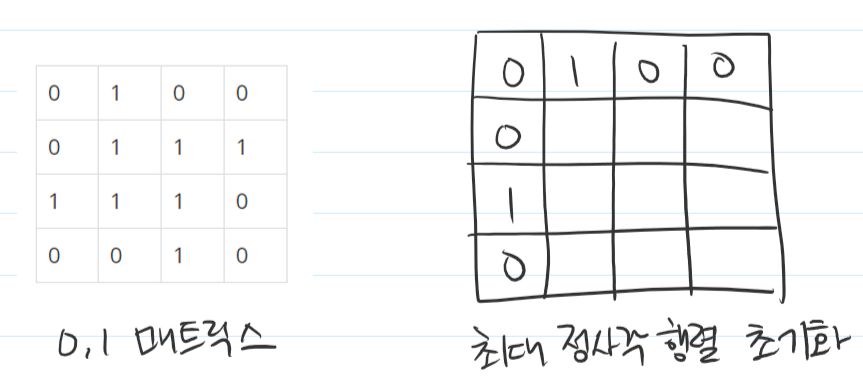 0 1 0 0
0 1 1 1
1 1 1 0
0 0 1 0
0,1 매트릭스
0 1 0 0
0
1
0
최대 정사각 행렬 초기화